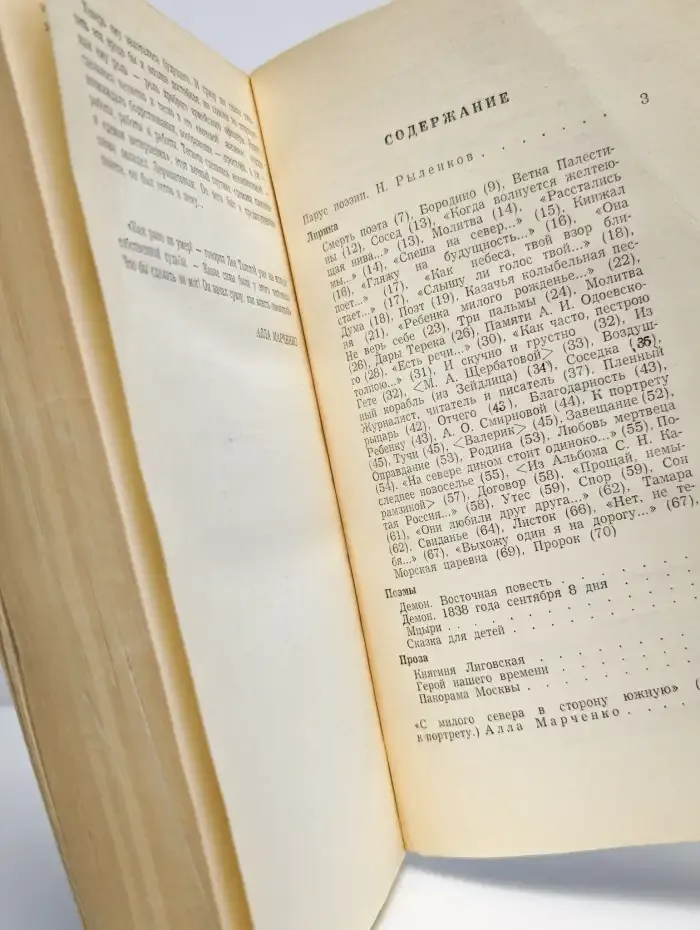 «Как рано он умер! — говорил Лев Толстой уже на исходе
собственной судьбы. — Какие силы были у этого человека!
Что бы сделать он мог! Он начал сразу, как власть имеющий
АЛЛА МАРЧЕНКО
СОДЕРЖАНИЕ
Парус поэзии. Н. Рыленков . . . . . . . 3
Лирика
Смерть поэта (7), Бородино (9), Ветка Палести-
ны (12), Сосед (13), «Когда волнуется желтею-
щая нива...» (13), Молитва (14), «Расстались
мы...» (14), «Спеша на север...» (15), Кинжал
(16), «Гляжу на будущность...» (16), «Она
поет...» (17), «Как небеса, твой взор бли-
стает...» (17), «Слышу ли голос твой...» (18),
Дума (18), Поэт (19), Казачья колыбельная пес-
ня (21), «Ребенка милого рожденье...» (22),
Не верь себе (23), Три пальмы (24), Молитва
(26), Дары Терека (26), Памяти А. И. Одоевско-
го (28), «Есть речи...» (30), «Как часто, пестрою
толпою...» (31), И скучно и грустно (32), Из
Гете (32), <М. А. Щербатовой> (33), Воздуш-
ный корабль (из Зейдлица) (34), Соседка (35),
Журналист, читатель и писатель (37), Пленный
рыцарь (42), Отчего (43), Благодарность (43),
Ребенку (43), А. О. Смирновой (44), К портрету
(45), Тучи (45), <Валерик> (45), Завещание (52),
Оправдание (53), Родина (53), Любовь мертвеца
(54), «На севере диком стоит одиноко...» (55), По-
следнее новоселье (55), <Из Альбома С. Н. Ка-
рамзиной> (57), Договор (58), «Прощай, немы-
тая Россия...» (58), Утес (59), Спор (59), Сон
(61), «Они любили друг друга...» (62), Тамара
(62), Свиданье (64), Листок (66), «Нет, не те-
бя...» (67), «Выхожу один я на дорогу...» (67),
Морская царевна (69), Пророк (70)
Поэмы
Демон. Восточная повесть . . . . .
Демон. 1838 года сентября 8 дня . . .
Мцыри . . . . . . . . .
Сказка для детей . . . . . . .
Проза
Княгиня Лиговская . . . . . .
Герой нашего времени . . . . .
Панорама Москвы . . . . . .
«С милого севера в сторону южную» (
к портрету.) Алла Марченко . . . .